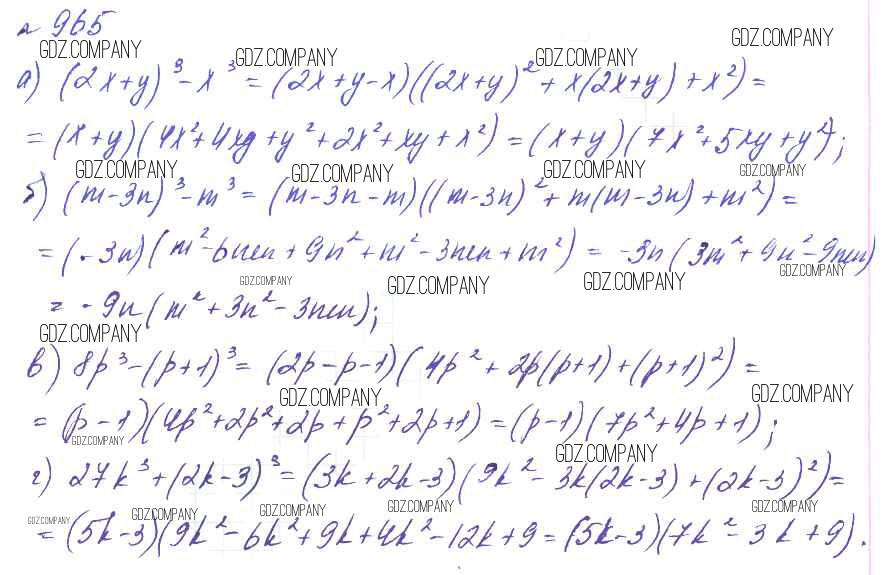 № 965
GDZ.COMPANY GDZ.COMPANY GDZ.COMPANY GDZ.COMPANY
а) (2x+y)³-x³=(2x+y-x)((2x+y)²+x(2x+y)+x²)=
=(x+y)(4x²+4xy+y²+2x²+xy+x²)=(x+y)(7x²+5xy+y²);
GDZ.COMPANY GDZ.COMPANY GDZ.COMPANY GDZ.COMPANY
б) (m-3n)³-m³=(m-3n-m)((m-3n)²+m(m-3n)+m²)=
=(-3n)(m²-6mn+9n²+m²-3mn+m²)=-3n(3m²+9n²-9mn)
GDZ.COMPANY GDZ.COMPANY GDZ.COMPANY GDZ.COMPANY
=-9n(m²+3n²-3mn);
GDZ.COMPANY
в) 8p³-(p+1)³=(2p-p-1)(4p²+2p(p+1)+(p+1)²)=
GDZ.COMPANY GDZ.COMPANY
=(p-1)(4p²+2p²+2p+p²+2p+1)=(p-1)(7p²+4p+1);
GDZ.COMPANY GDZ.COMPANY
г) 27k³+(2k-3)³=(3k+2k-3)(9k²-3k(2k-3)+(2k-3)²)=
GDZ.COMPANY GDZ.COMPANY GDZ.COMPANY GDZ.COMPANY GDZ.COMPANY
=(5k-3)(9k²-6k²+9k+4k²-12k+9=(5k-3)(7k²-3k+9).